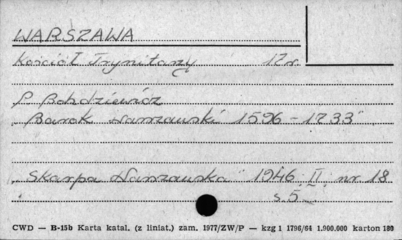 WARSZAWA
Kościół Trynitarzy 17 r.
P. Bohdziewicz
"Barok Warszawski 1596 - 1733"
"Skarpa Warszawska" 1946. II. nr. 18
s. 5
CWD — B-15b Karta katal. (z liniat.) zam. 1977/ZW/P — kzg 1 1796/64 1.900.000 karton 180